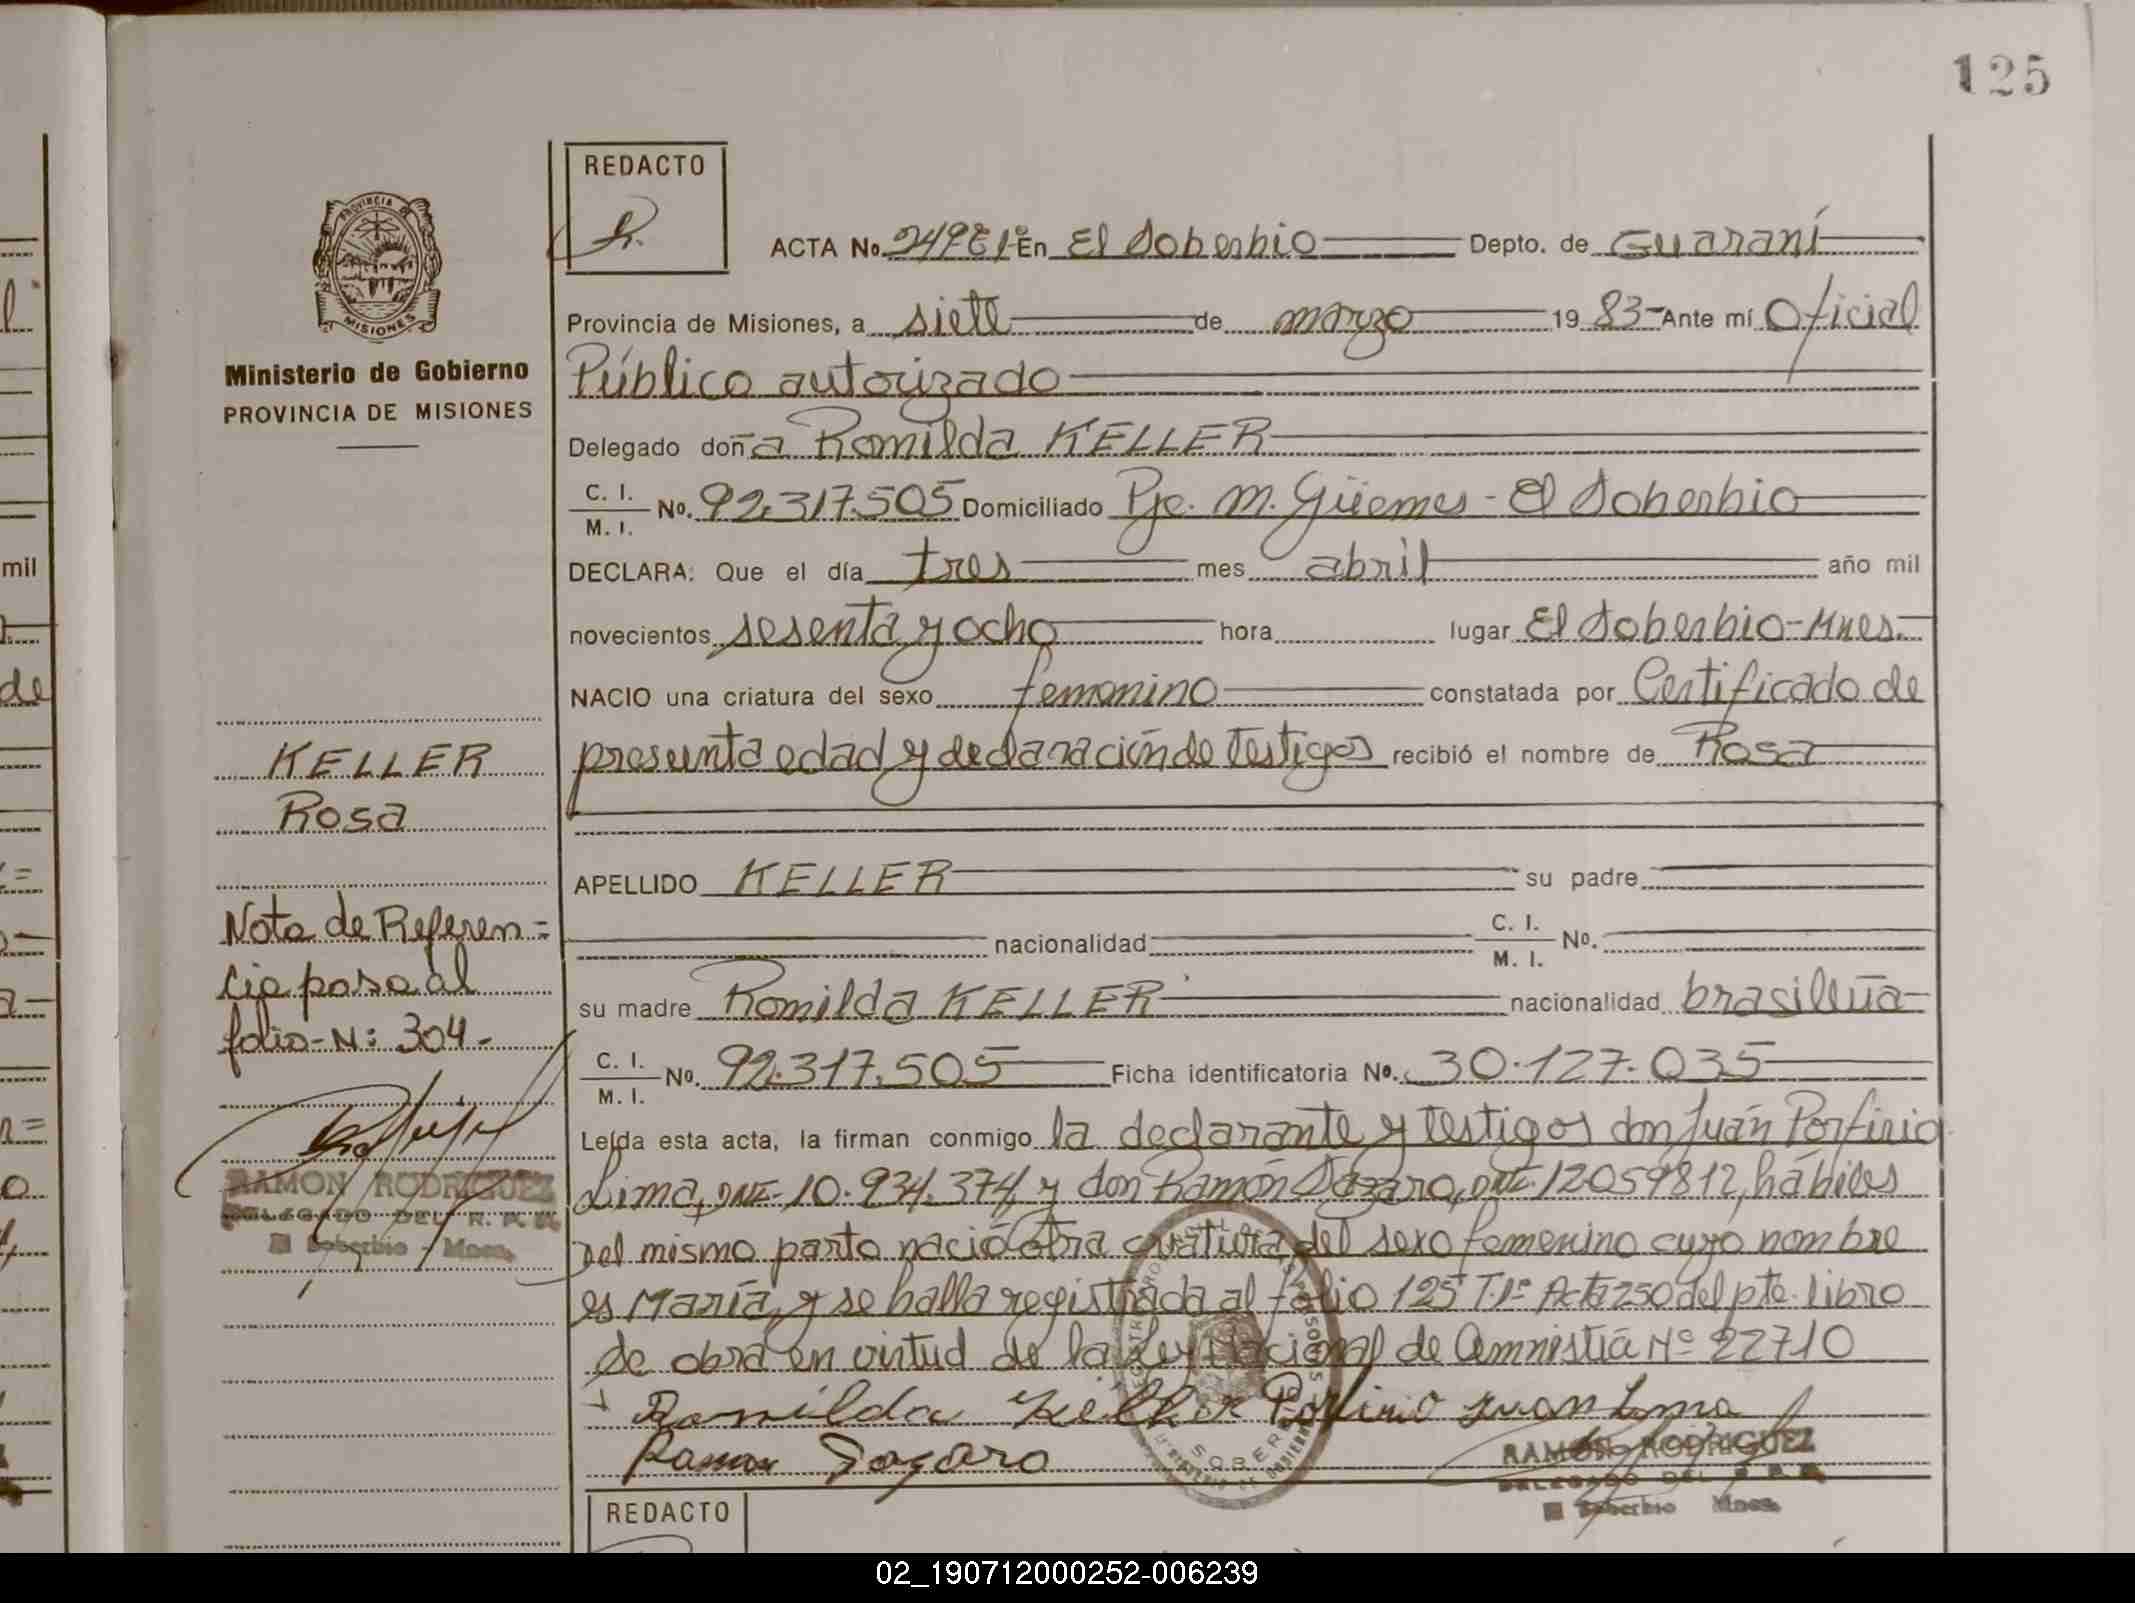 125
REDACTO
ACTA No. En El Soberbio Depto. de Guaraní
Provincia de Misiones, a siete de marzo 19 83- Ante mí Oficial
Público autorizado
PROVINCIA
MISIONES
Ministerio de Gobierno
PROVINCIA DE MISIONES
Delegado doña Romilda KELLER
C. I.
M. I.
No. 92.317.505 Domiciliado Pje. M. Güemes - El Soberbio
DECLARA: Que el día tres mes abril año mil
novecientos sesenta y ocho hora lugar El Soberbio-Mnes.
NACIO una criatura del sexo femenino constatada por Certificado de
presunta edad y declaración de testigos recibió el nombre de Rosa
KELLER
Rosa
APELLIDO KELLER su padre
nacionalidad C. I.
M. I. No.
su madre Romilda KELLER nacionalidad brasilleña
C. I.
M. I.
No. 92.317.505 Ficha identificatoria No. 30.127.035
Nota de Referen=
cia pasa al
folio-N: 304-
RAMON RODRIGUEZ
DELEGADO DEL R. P.
El Soberbio - Mnes.
Leída esta acta, la firman conmigo la declarante y testigos don Juán Porfirio
Lima, DNI. 10.934.374 y don Ramón DNI. 12059812, hábiles
Del mismo parto nació otra criatura del sexo femenino cuyo nombre
es María, y se halla registrada al folio 125 Acta 250 del pte. libro
Se obra en virtud de la Ley Nacional de Amnistía Nº 22710
Romilda Keller Porfirio Juan Lima
Ramon
RAMON RODRIGUEZ
DELEGADO DEL R. P.
El Soberbio Mnes.
REDACTO
mil
de
02_190712000252-006239